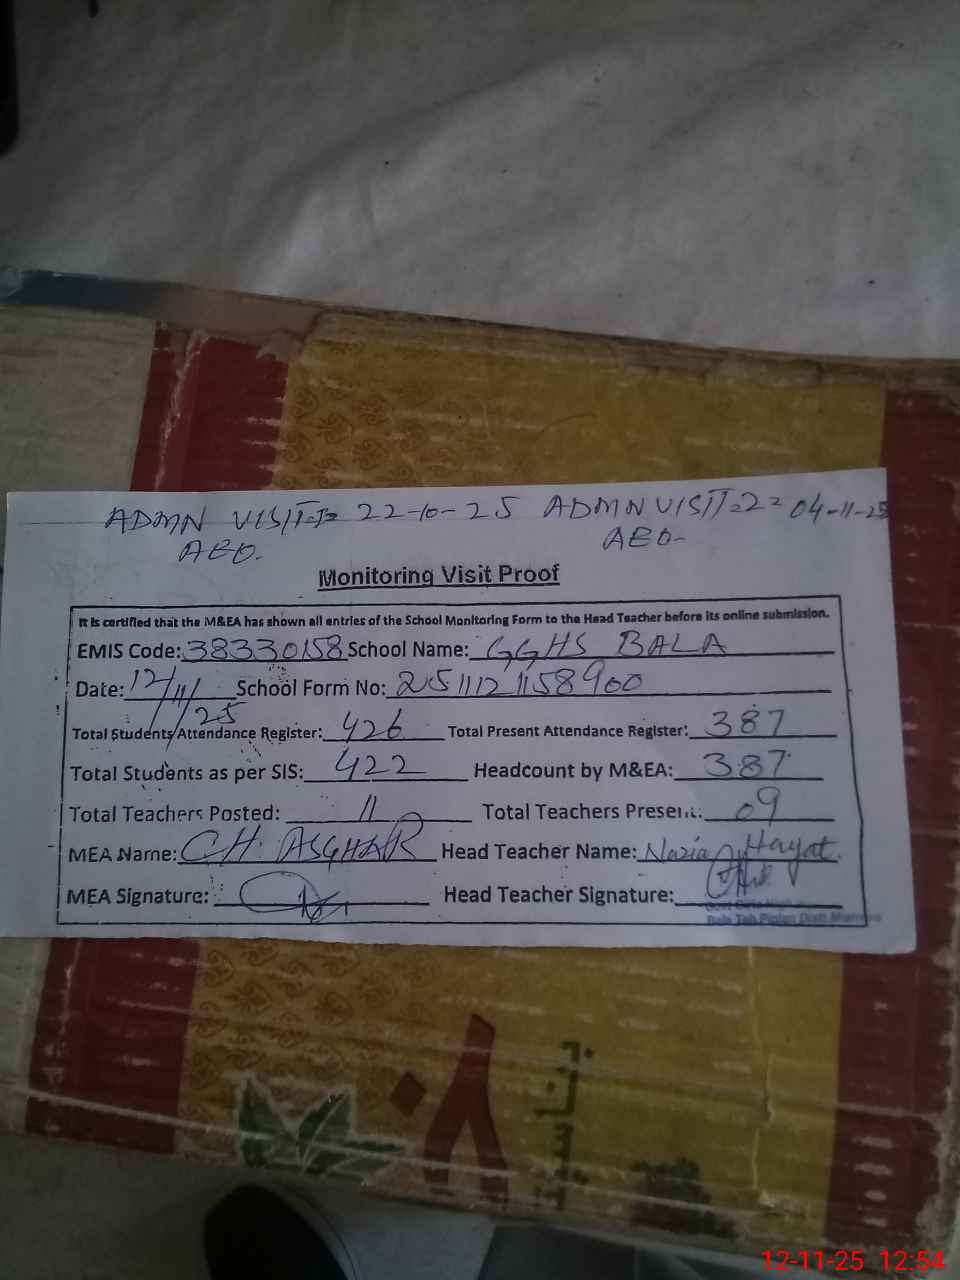 ADMN VISIT-I= 22-10-25 ADMN VISIT-2= 04-11-25
AEO- AEO-
Monitoring Visit Proof
It is certified that the M&EA has shown all entries of the School Monitoring Form to the Head Teacher before its online submission.
EMIS Code: 38330158 School Name: GGHS BALA
Date: 12/11/25 School Form No: 2511121158900
Total Students Attendance Register: 426 Total Present Attendance Register: 387
Total Students as per SIS: 422 Headcount by M&EA: 387
Total Teachers Posted: 11 Total Teachers Present: 09
MEA Name: CH. ASGHAR Head Teacher Name: Nazia Hayat.
MEA Signature: Head Teacher Signature:
Govt Girls High
Bala Teh Piplan Distt
12-11-25 12:54